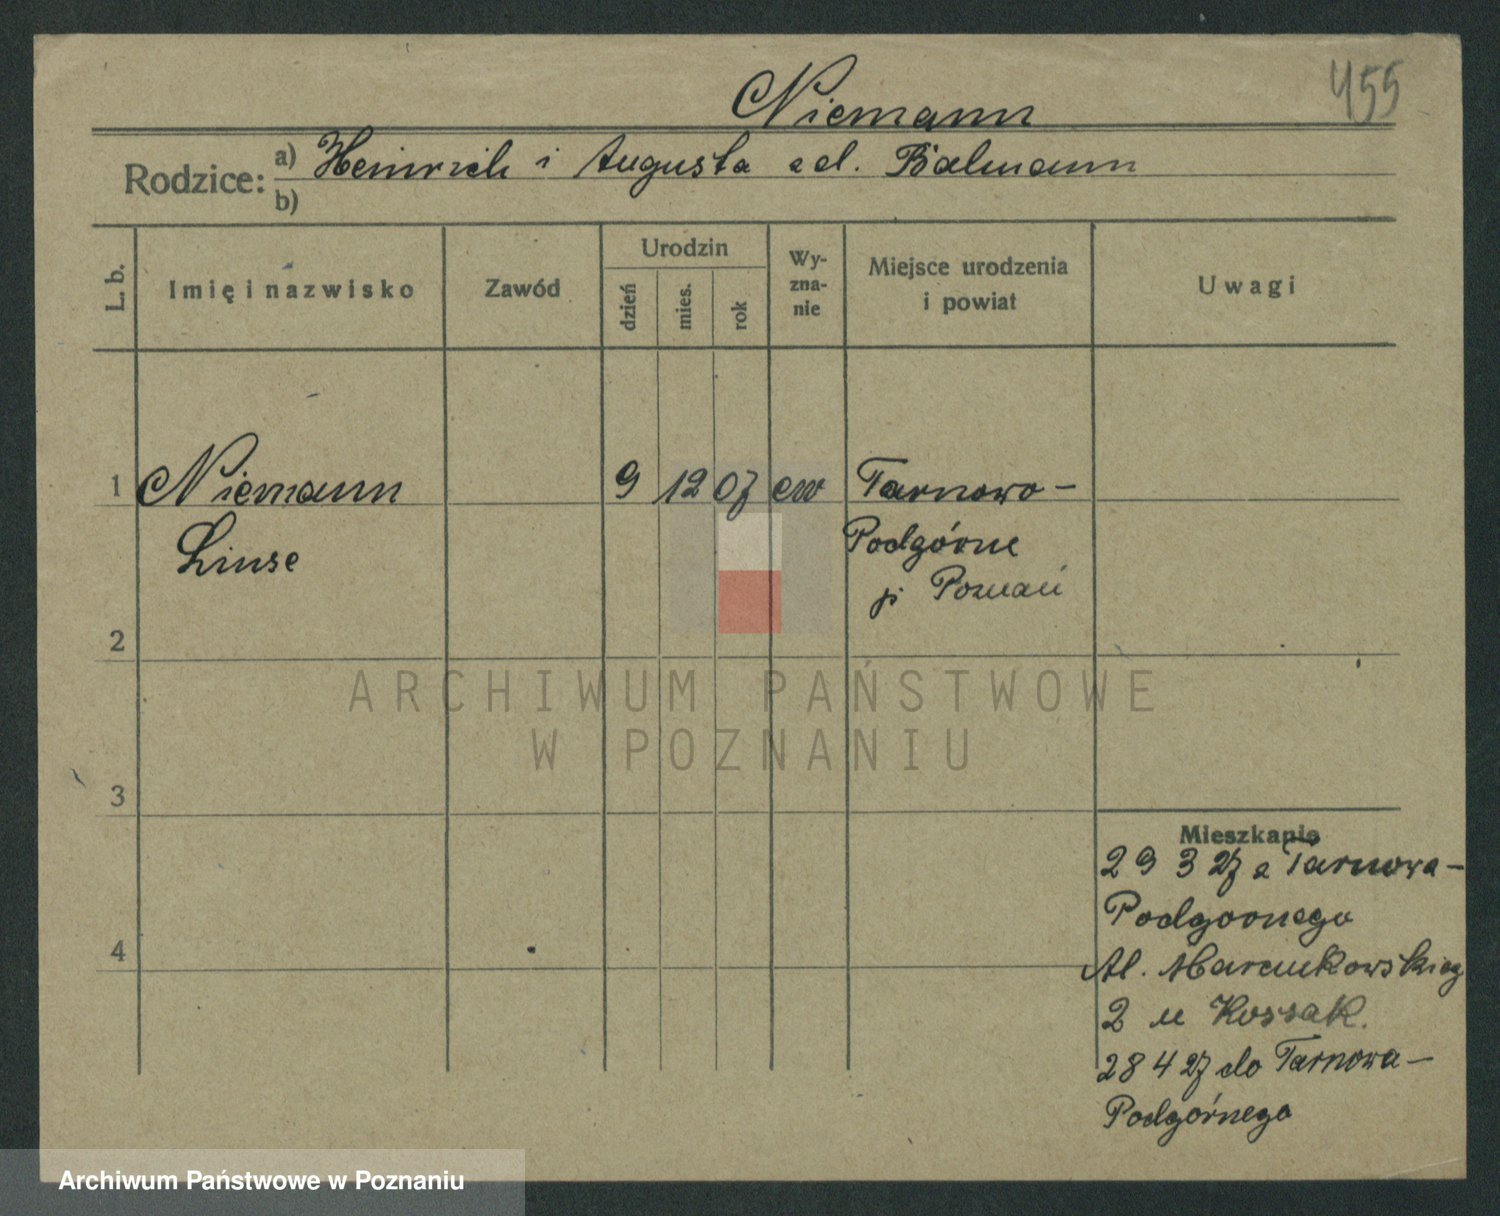 Niemann
455
Rodzice: a) Heinrich i Augusta zd. Balmann
b)
L. b.
Imię i nazwisko
Zawód
Urodzin
dzień
mies.
rok
Wy-
zna-
nie
Miejsce urodzenia
i powiat
Uwagi
1 Niemann 9 12 07 ew Tarnowo-
Linse Podgórne
p Poznań
2
3
4
ARCHIWUM PAŃSTWOWE
W POZNANIU
Mieszkanie
29 3 27 z Tarnowa-
Podgornego
Al. Marcinkowskieg
2 u Kossak.
28 4 27 do Tarnowa-
Podgórnego
Archiwum Państwowe w Poznaniu